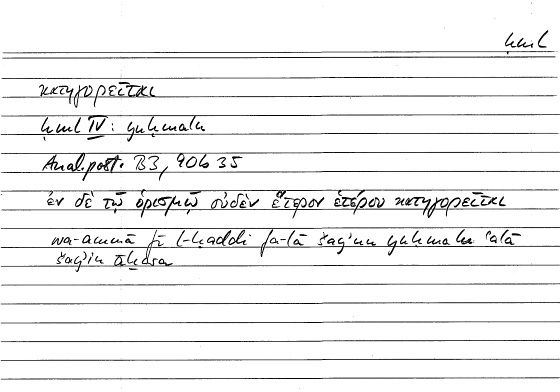 ḥml
κατηγορεῖται
ḥml IV: yuḥmalu
Anal. post. B3, 90b35
ἐν δὲ τῷ ὁρισμῷ οὐδὲν ἕτερον ἑτέρου κατηγορεῖται
wa-ammā fī l-ḥaddi fa-lā šayʾun yuḥmalu ʿalā
šayʾin āḫara